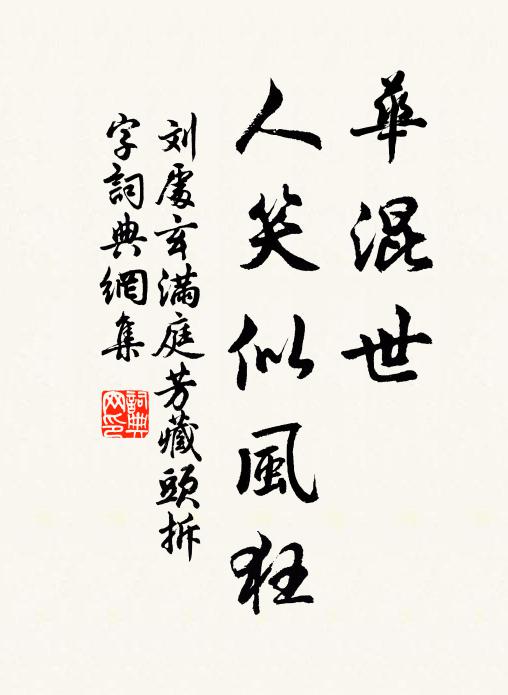 華混世
人笑似風狂
刘處玄满庭芳藏頭拆
字詞典網集
詞典
网印